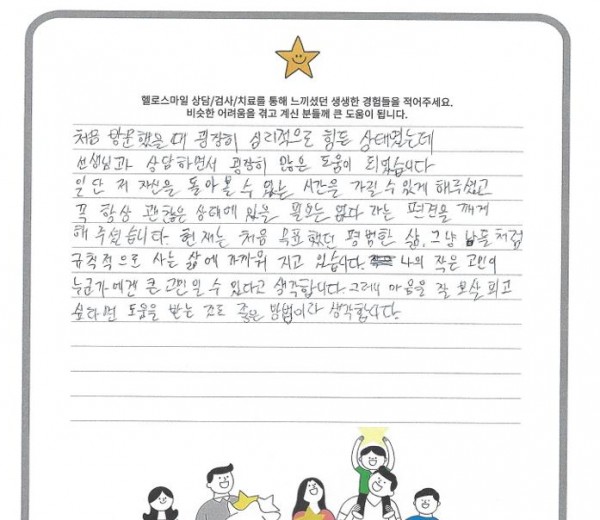 헬로스마일 상담/검사/치료를 통해 느끼셨던 생생한 경험들을 적어주세요.
비슷한 어려움을 겪고 계신 분들께 큰 도움이 됩니다.
처음 방문했을 때 굉장히 심리적으로 힘든 상태였는데
선생님과 상담하면서 굉장히 많은 도움이 되었습니다
일단 저 자신을 돌아볼 수 있는 시간을 가질 수 있게 해주셨고
꼭 항상 괜찮은 상태에 있을 필요는 없다 라는 편견을 깨게
해 주셨습니다. 현재는 처음 목표했던 평범한 삶, 그냥 남들처럼
규칙적으로 사는 삶에 가까워 지고 있습니다. 나의 작은 고민이
누군가에겐 큰 고민일 수 있다고 생각합니다. 그러니 마음을 잘 보살피고
싶다면 도움을 받는 것도 좋은 방법이라 생각합니다.